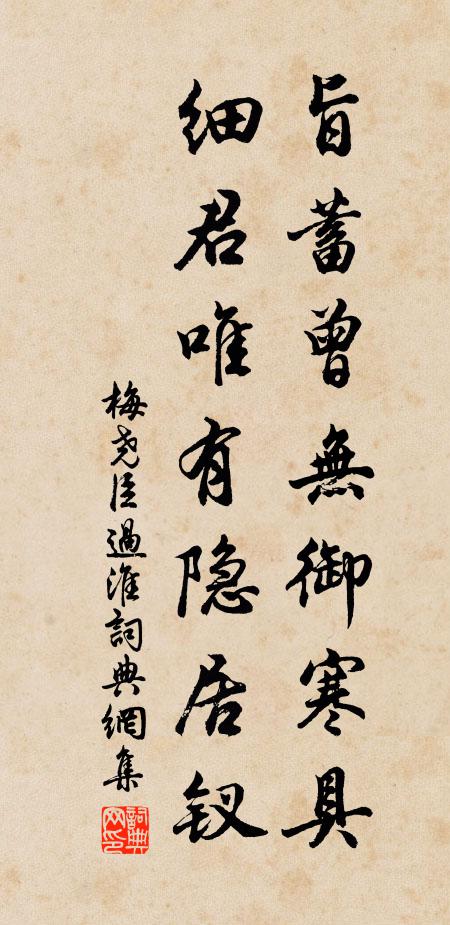 旨蓄曾無御寒具
细君唯有隐居钗
梅尧臣過淮詞典網集
詞典網印